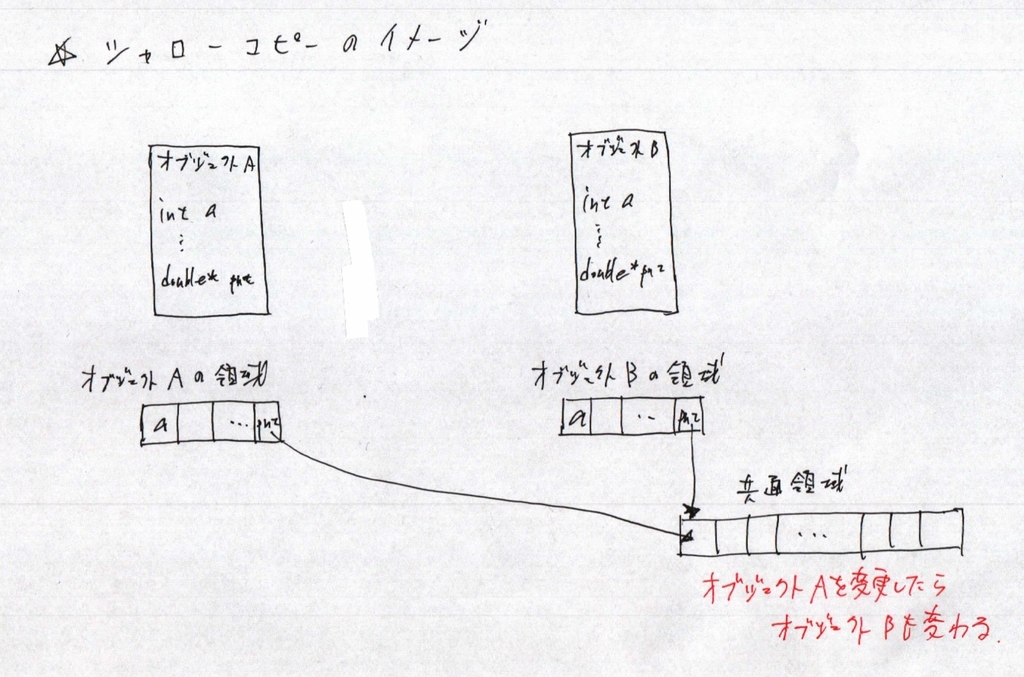 ☆ シャローコピーのイメージ
オブジェクトA
int a
⋮
double* pnt
オブジェクトB
int a
⋮
double* pnt
オブジェクトAの領域
a … pnt
オブジェクトBの領域
a … pnt
共通領域
…
オブジェクトAを変更したら
オブジェクトBも変わる.